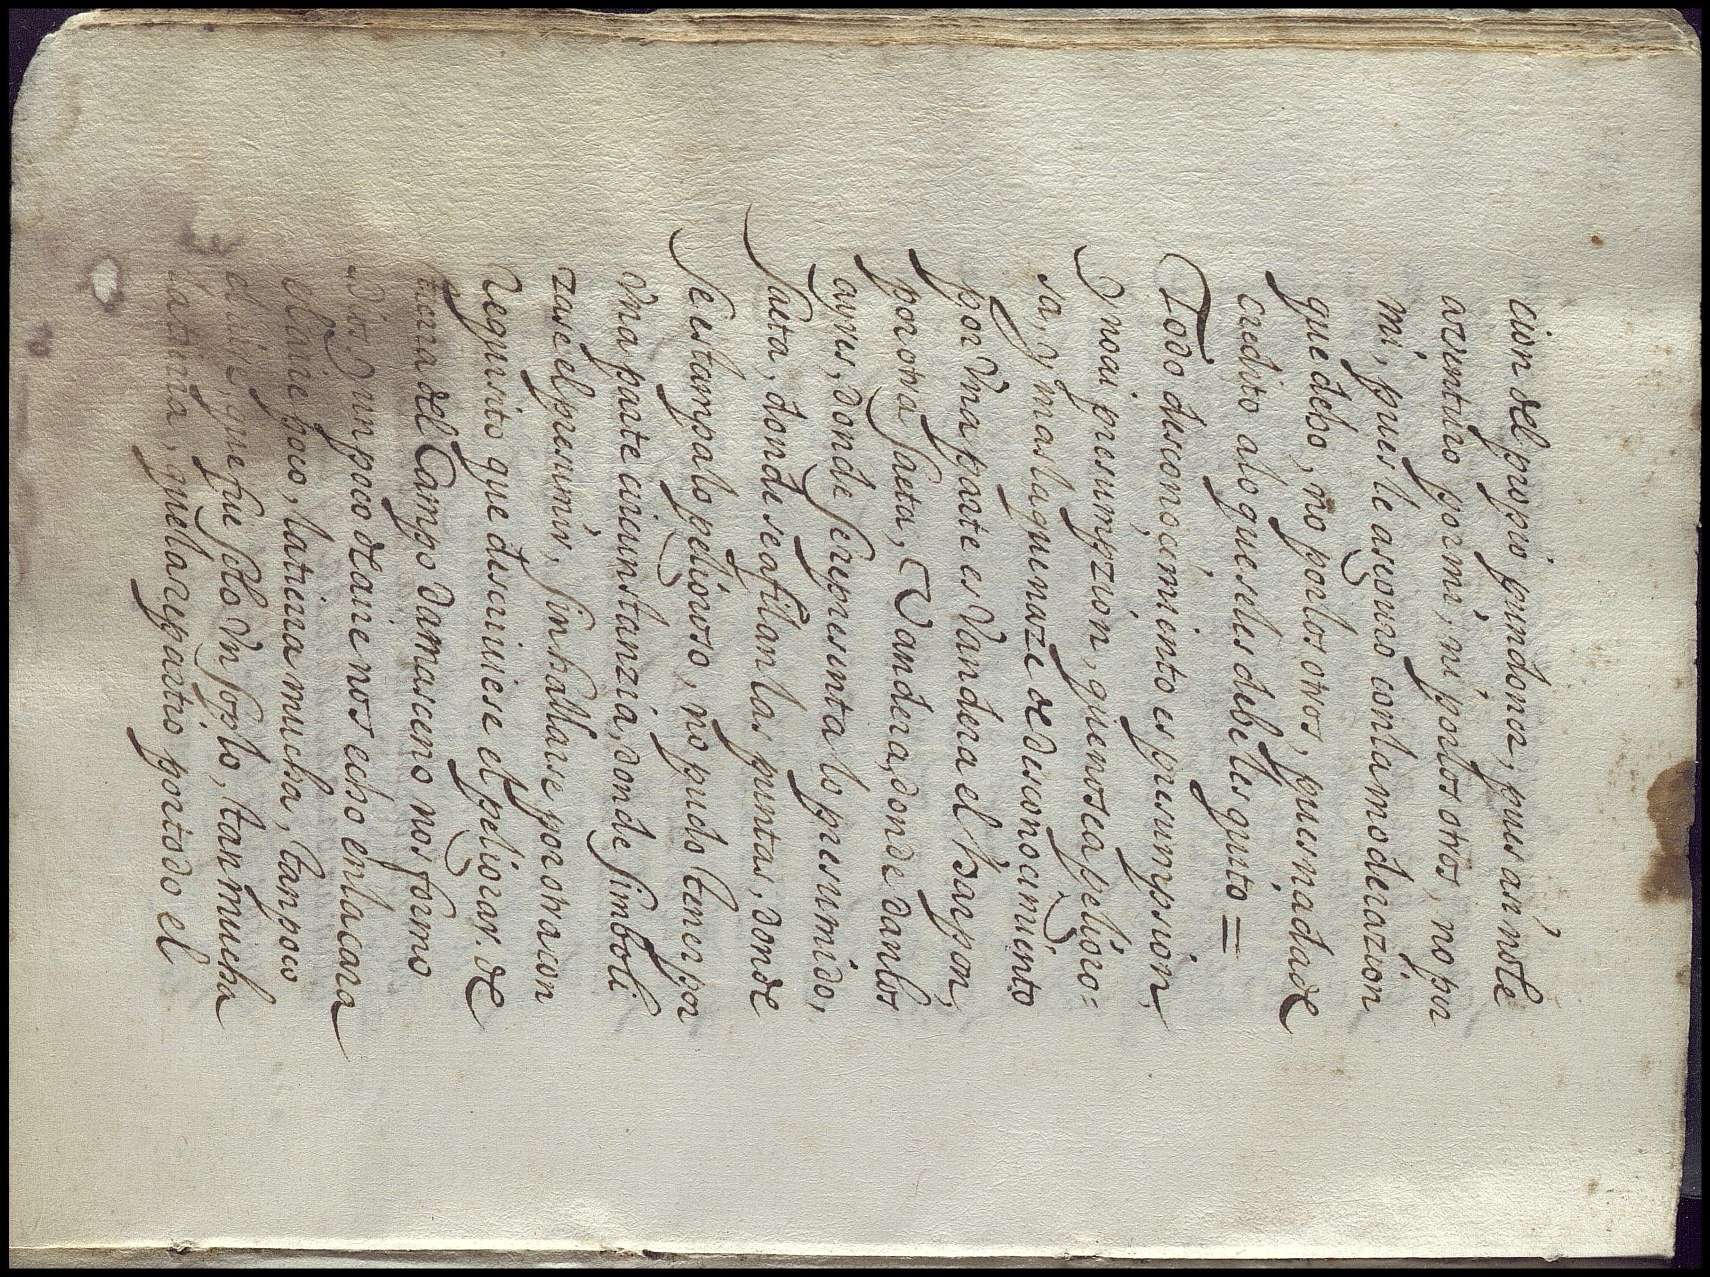 cion del propio pundonor, pues asi no le
aventuro por mi, ni por los otros, no por
mi, pues le aseguro con la moderazion
que debo, no por los otros, pues nada de
credito a lo que se les debe les quito =
Todo disconocimiento es presumpsion,
y no ai presumpzion, que no sea peligro=
sa, y mas la que naze de disconocimiento
por una parte es Vandera el Harpon,
por otra saeta, Vandera, donde dan los
ayres, donde se representa lo presumido,
saeta, donde se afilan las puntas, donde
se estampa lo peligroso, no pudo tener por
una parte circunstanzia, donde simboli
zase el presumir, sin hallarse por otra con
requisito que descriviese el peligrar. de
tierra del Campo damasceno nos formo
Dios y un poco de aire nos echo en la cara
el aire poco, la tierra mucha, tan poco
el aire, que fue solo un soplo, tan mucha
la tierra, que la repartio por todo el